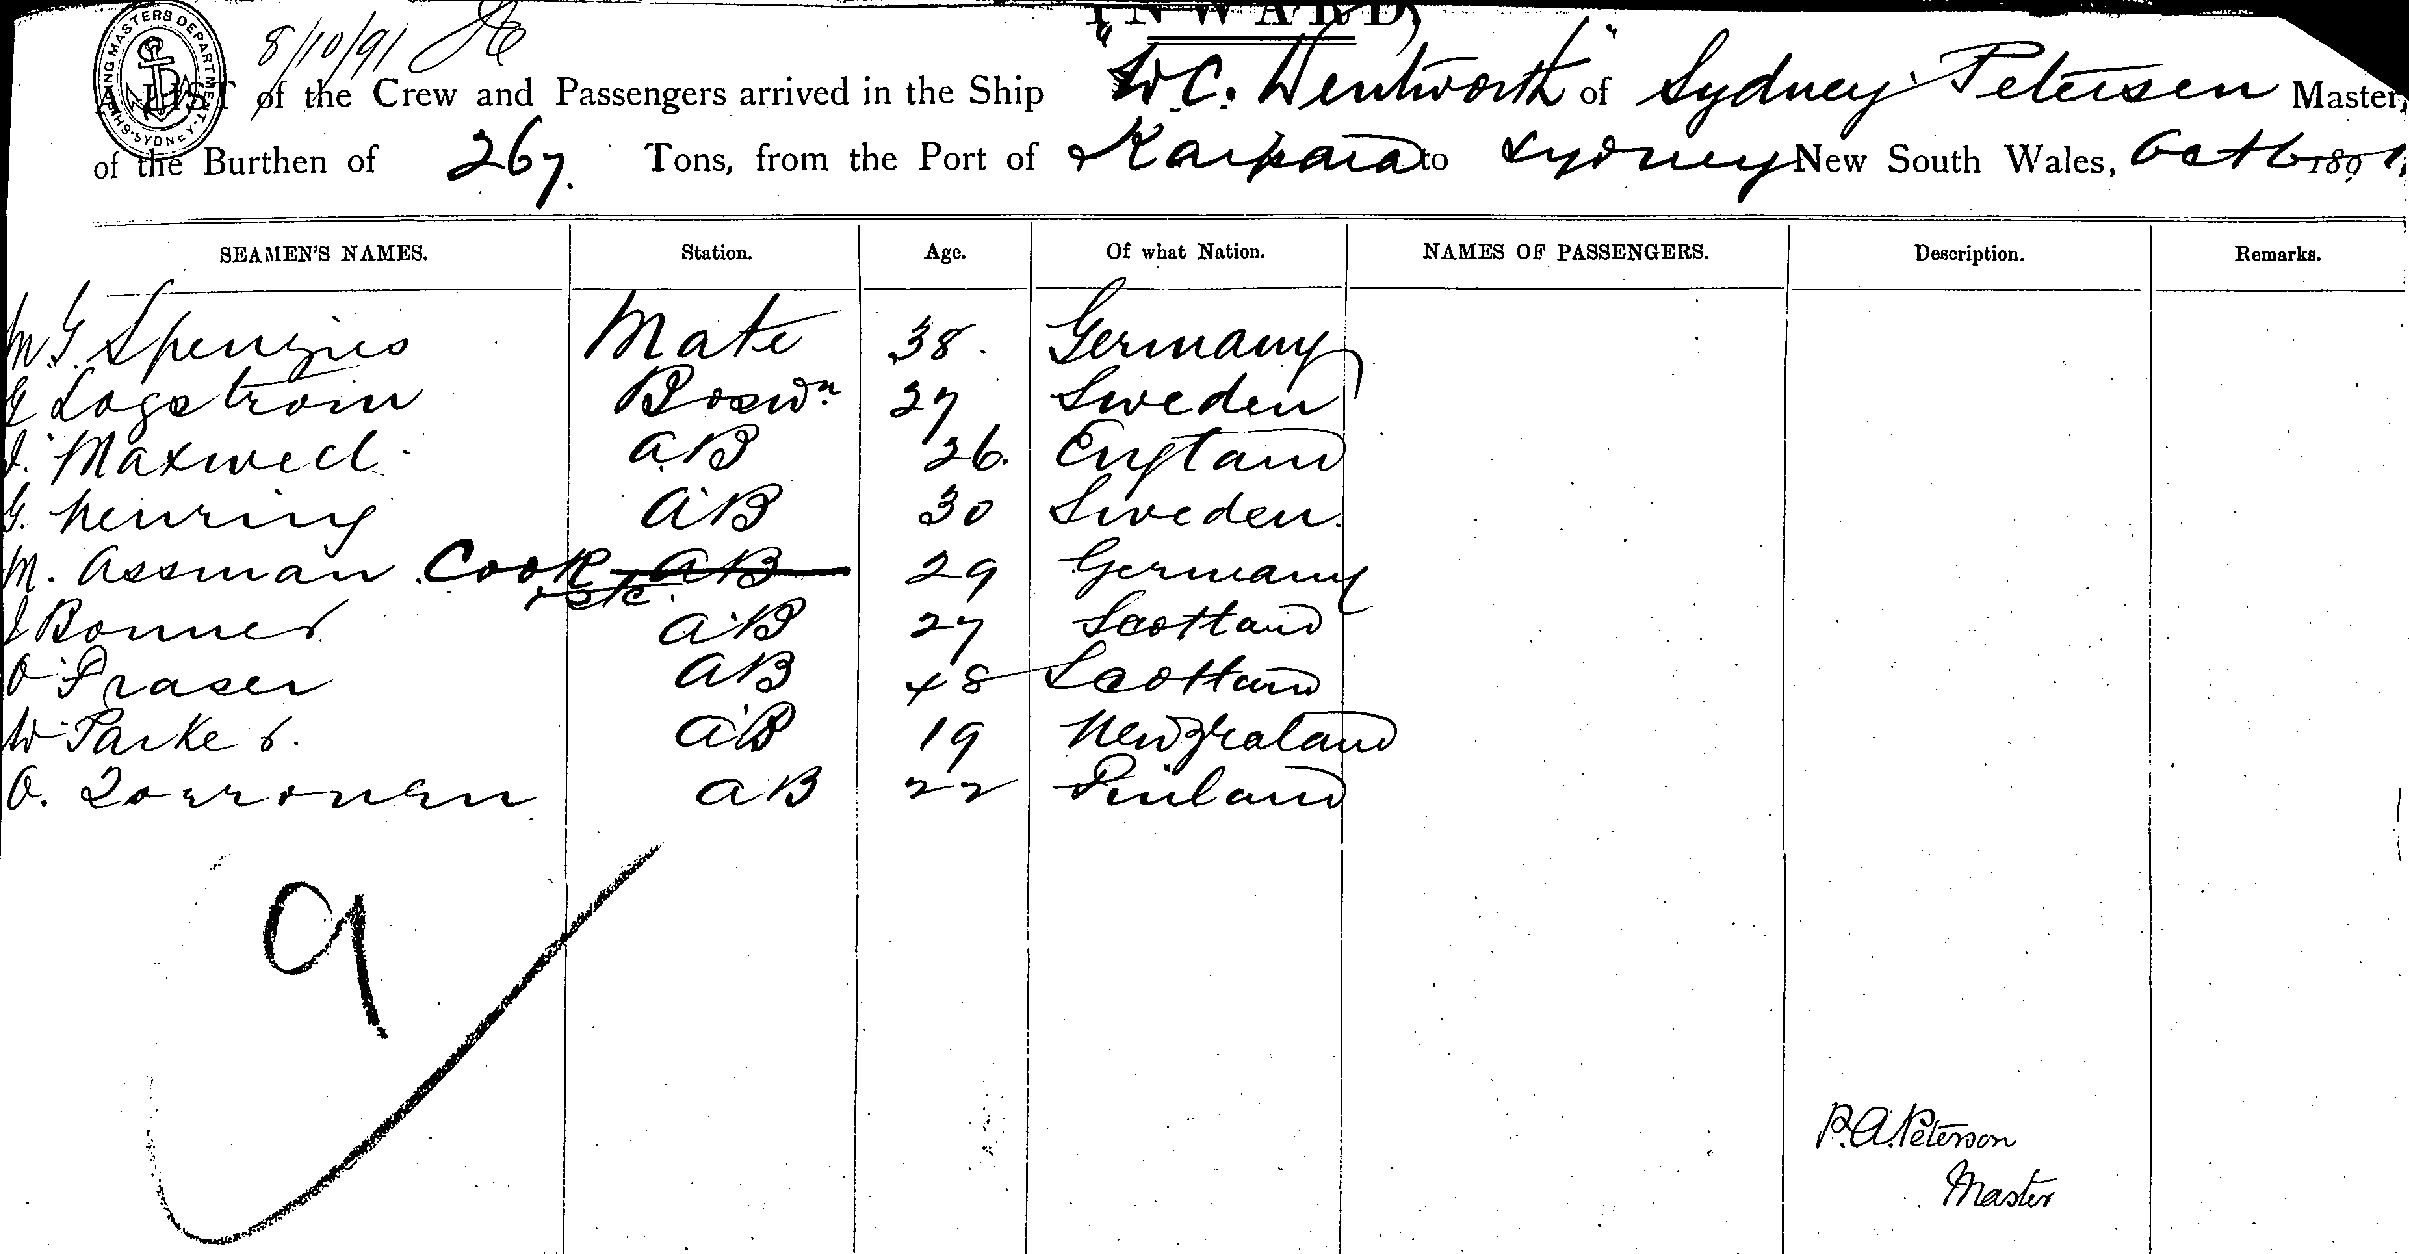 INWARD,
SHIPPING MASTERS DEPARTMENT SYDNEY
8/10/91
A LIST of the Crew and Passengers arrived in the Ship "W.C. Wentworth" of Sydney Petersen Master,
of the Burthen of 267. Tons, from the Port of Kaipara to Sydney New South Wales, Oct 6 1891,
SEAMEN'S NAMES. Station. Age. Of what Nation. NAMES OF PASSENGERS. Description. Remarks.
M G Mate 38. Germany
Logstrom Bosw.n 27 Sweden
J. Maxwell AB 26. England
G. Nenring AB 30 Sweden.
M. Assman Cook etc. AB 29 Germany
J Bonner AB 27 Scotland
O Fraser AB 48 Scotland
W Parker. AB 19 New Zealand
O. AB 22 Finland
9
P.A. Peterson
Master